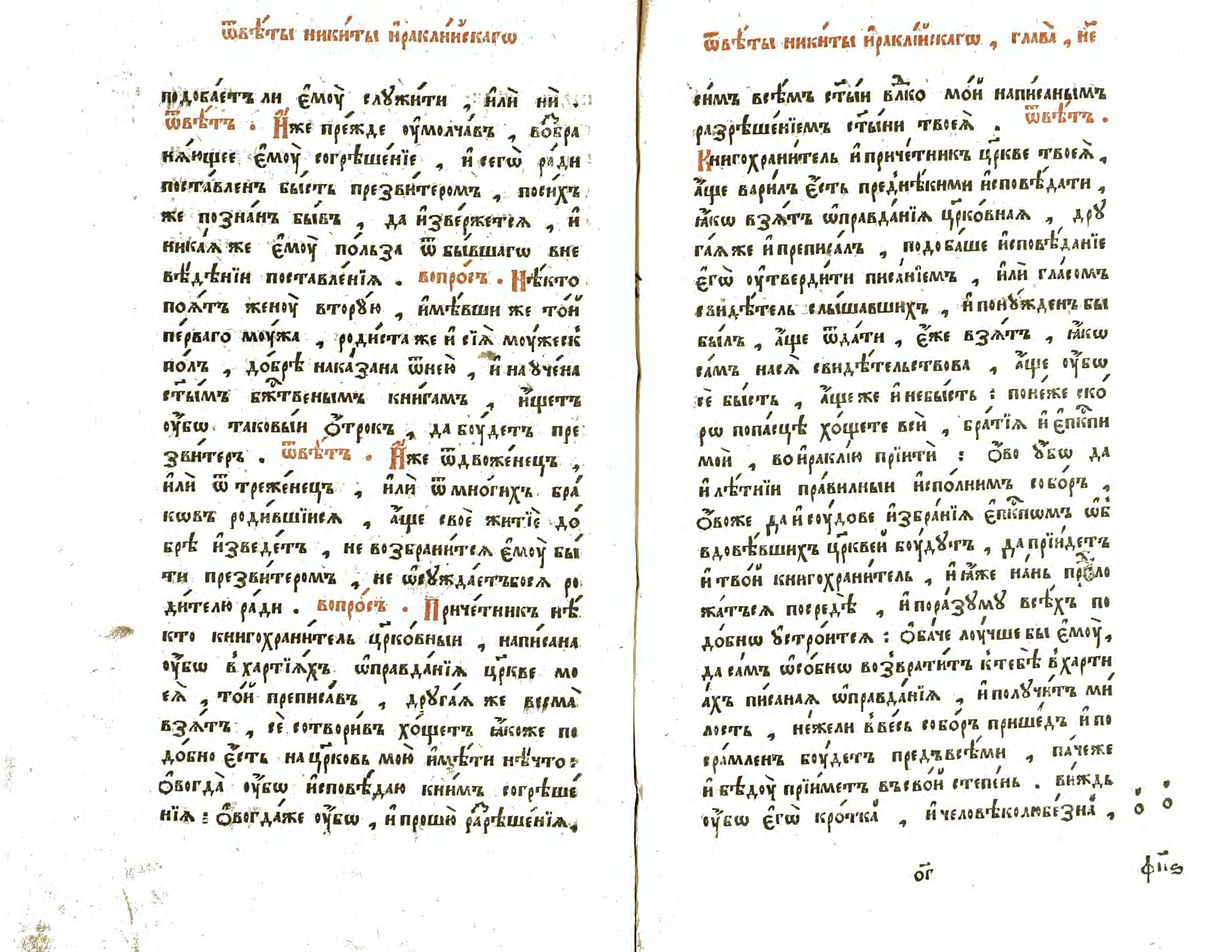 ѿвѣ́ты ники́ты и҆ракли́йскагѡ
подоба́етъ ли є҆моу̀ служи́ти , и҆лѝ нѝ .
ѿвѣ́тъ . И҆́же пре́жде оу҆молча́въ , во̀бра
нѧ́ющее є҆моу̀ согрѣше́нїе , и҆ сегѡ̀ ра́ди
поста́вленъ бы́сть презви́теромъ , поси́хъ
же позна́нъ бы́въ , да и҆зве́ржетсѧ , и҆
никаѧ́ же є҆моу̀ по́льза ѿ бы́вшагѡ вне
вѣ́дѣнїи поставле́нїѧ . вопро́съ . Нѣ́кто
поѧ́тъ женоу̀ втору́ю , и҆мѣ́вши же то́й
пе́рваго моу́жа , роди́ста же и҆ сїѧ̀ моу́жескъ
по́лъ , до́брѣ наказа́на ѿ нею̀ , и҆ наоу́чена
ст҃ы́мъ бж҃твенымъ кни́гамъ , и҆́щетъ
оу҆́бѡ таковы́и ѻ҆́трокъ , да боу́детъ пре
зви́теръ . ѿвѣ́тъ . И҆́же ѿ двоже́нецъ ,
и҆лѝ ѿ треже́нецъ , и҆лѝ ѿ мно́гихъ бра́
кѡвъ роди́вшїисѧ , а҆́ще своѐ житїѐ до́
брѣ и҆зведе́тъ , не возбрани́тсѧ є҆моу̀ бы́
ти презви́теромъ , не ѡ҆сужда́етъбосѧ ро
ди́телю ра́ди . вопро́съ . Приче́тникъ нѣ́
кто книгохрани́тель цр҃ко́вныи , напи́сана
оу҆́бѡ в̾ха́ртїѧхъ ѡ҆правда́нїѧ цр҃кве мо
еѧ̀ , то́й преписа́въ , друга́ѧ же весма̀
взѧ́тъ , сѐ сотвори́въ хо́щетъ ꙗ҆́коже по
до́бно є҆́сть на цр҃ковь мою̀ и҆мѣ́ти нѣ́что :
ѻ҆вогда̀ оу҆́бѡ и҆сповѣ́даю кни́мъ согрѣше́
нїѧ : ѻ҆вогда́же оу҆́бѡ , и҆ прошю̀ разрѣше́нїѧ ,
ѿвѣ́ты ники́ты и҆раклі́йскагѡ , глава̀ , н҃е
си́мъ всѣ́мъ ст҃ы́и вл҃ко мо́й написаны́мъ
разрѣше́нїемъ ст҃ы́ни твоеѧ̀ . ѿвѣ́тъ .
Книгохрани́тель и҆ приче́тникъ цр҃кве твоеѧ̀ ,
а҆́ще вари́лъ є҆́сть пред̾нѣ́кими и҆сповѣ́дати ,
ꙗ҆́кѡ взѧ́тъ ѡ҆правда́нїѧ цр҃ко́внаѧ , дру
га́ѧ же и҆ преписа́лъ , подоба́ше и҆сповѣ́данїе
є҆гѡ̀ оу҆тверди́ти писа́нїемъ , и҆лѝ гла́сомъ
свидѣ́тель слы́шавшихъ , и҆ пону́жденъ бы
бы́лъ , а҆́ще ѿда́ти , є҆́же взѧ́тъ , ꙗ҆́кѡ
са́мъ насѧ̀ свидѣ́тельствова , а҆́ще оу҆́бѡ
сѐ бы́сть , а҆́ще же и҆ небы́сть : поне́же ско́
рѡ попа́сцѣ хо́щете всѝ , бра́тїѧ и҆ є҆пⷭ҇кпи
мои̑ , во и҆ракли́ю прїитѝ : ѻ҆́во ᲂу҆́бѡ да
и҆ лѣ́тнїи пра́вилныи и҆спо́лнимъ собо́ръ ,
ѻ҆́воже да и҆ соу́дове и҆збра́нїѧ є҆пⷭ҇кпѡмъ ѡ҆б̾
вдовѣ́вшихъ цр҃кве́й боу́дутъ , да прїи́детъ
и҆ тво́й книгохрани́тель , и҆ ꙗ҆́же на́нь предло
жа́тьсѧ посредѣ̀ , и҆ пора́зуму всѣ́хъ по
до́бнѡ ᲂу҆стро́итсѧ : ѻ҆ба́че лоу́чше бы є҆моу̀ ,
да са́мъ ѡ҆со́бнѡ возврати́тъ к̾тебѣ̀ в̾харти
а́хъ пи́санаѧ ѡ҆правда́нїѧ , и҆ полу́читъ ми́
лость , не́жели в̾ве́сь собо́ръ прише́дъ и҆ по
сра́мленъ боу́детъ предъвсѣ́ми , па́чеже
и҆ бѣ́доу прїи́метъ въсво́й степе́нь . ви́ждь
оу҆́бѡ є҆гѡ̀ кро́тка , и҆ человѣколюбе́зна ,
о҃г
фп҃ѕ